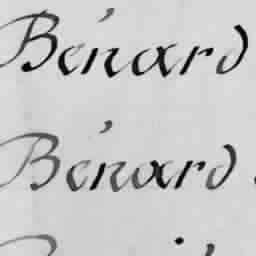 Bénard
Bénard